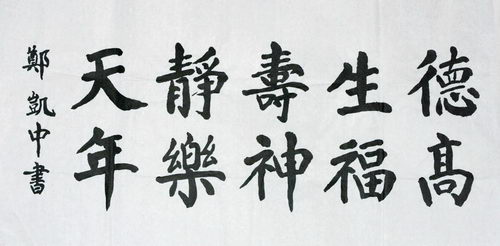 德高
生福
壽神
靜樂
天年
鄭凱中書